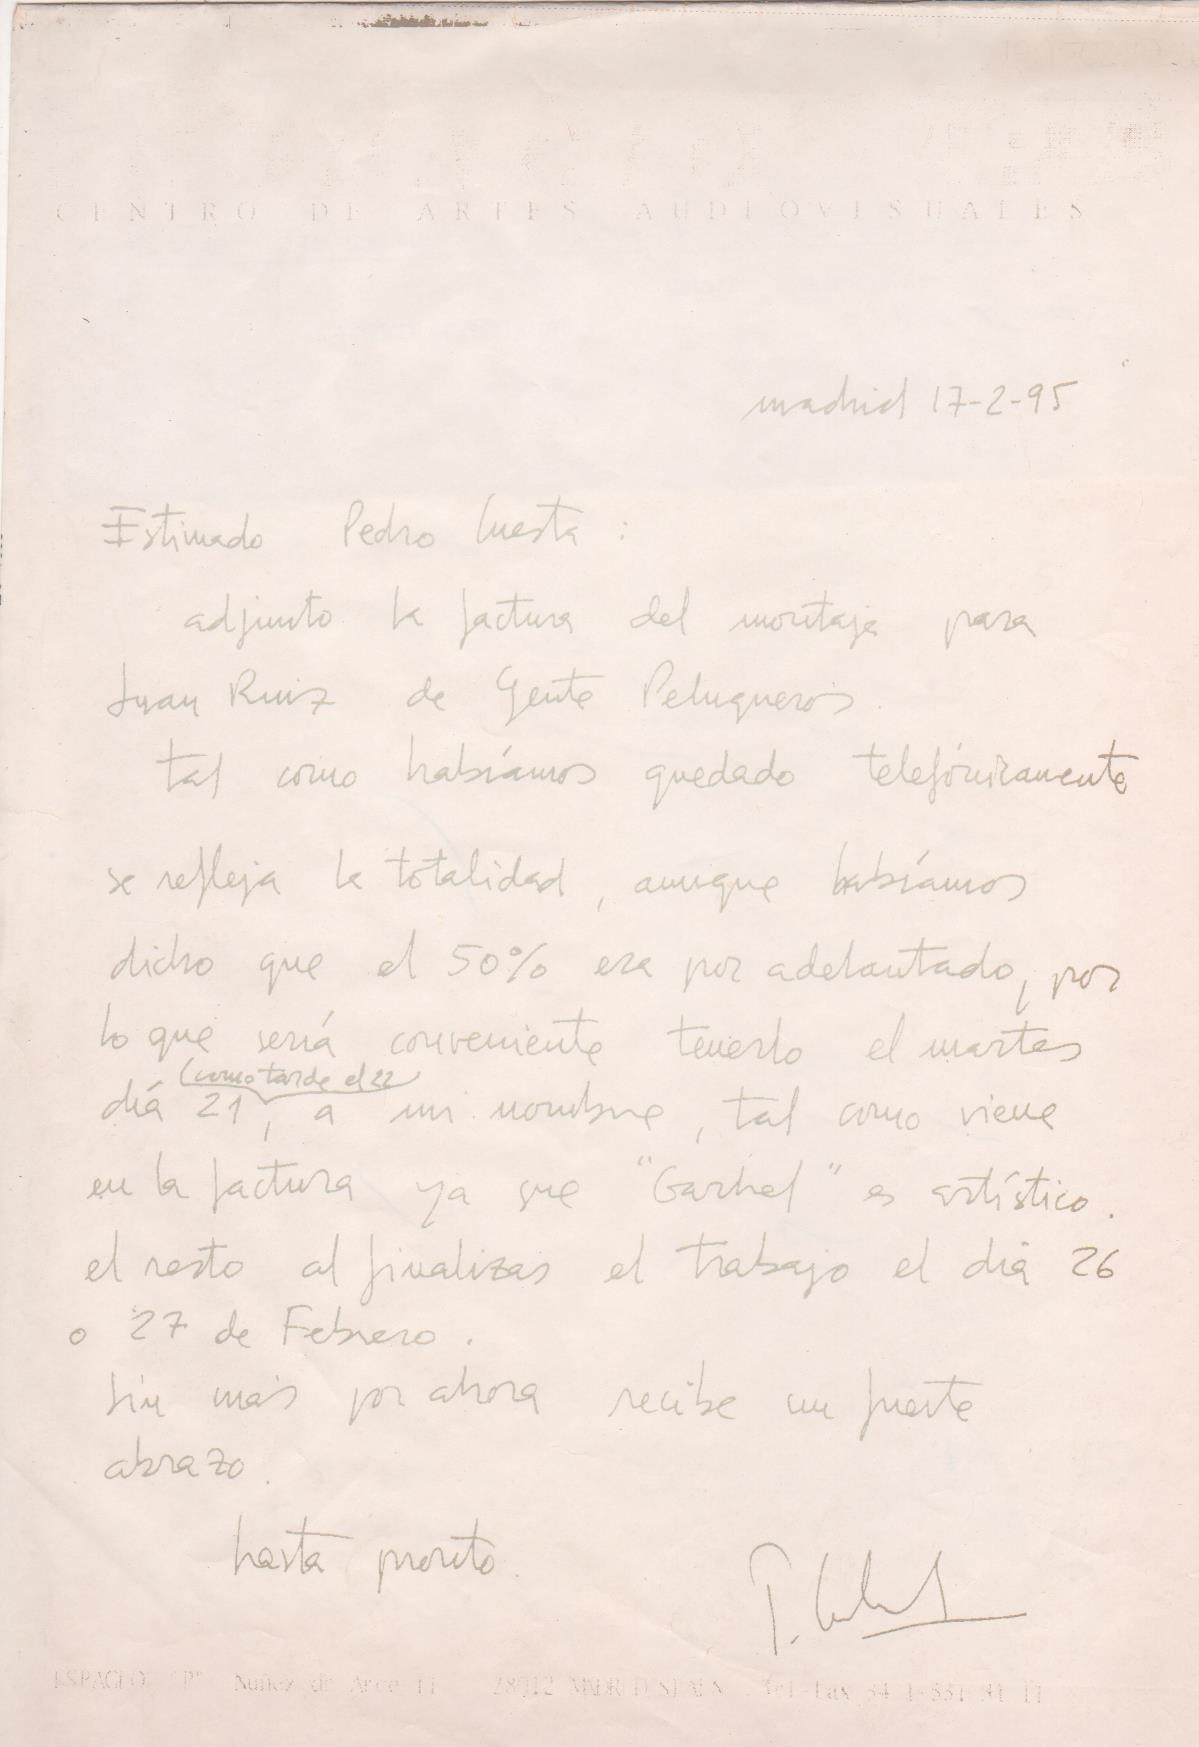 CENTRO DE ARTES AUDIOVISUALES
madrid 17-2-95
Estimado Pedro Cuesta:
adjunto la factura del montaje para
Juan Ruiz de Gente Peluqueros.
tal como habíamos quedado telefónicamente
se refleja la totalidad, aunque habíamos
dicho que el 50% era por adelantado, por
lo que sería conveniente tenerlo el martes
(como tarde el 22
día 21, a mi nombre, tal como viene
en la factura ya que "Garhel" es artístico.
el resto al finalizar el trabajo el día 26
o 27 de Febrero.
sin más por ahora recibe un fuerte
abrazo.
hasta pronto.
ESPACIO "P" Nuñez de Arce 11 28012 MADRID SPAIN. Tel-Fax 34 1-531 31 11